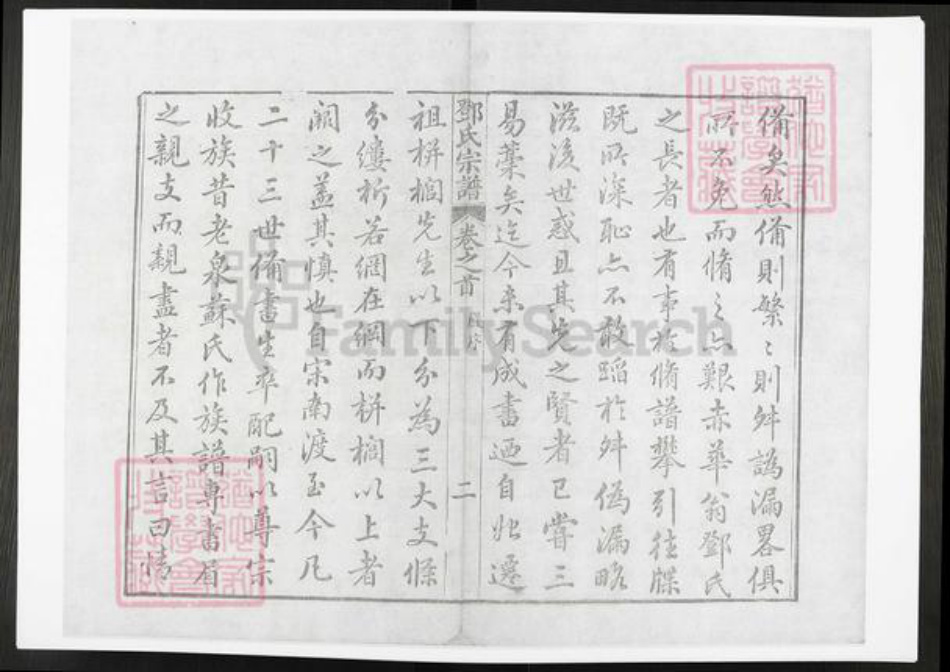 備矣然備則繁〻則舛譌漏畧俱
所不免而脩之亦艱赤華翁鄧氏
之長者也有事於脩譜攀引往牒
既所深恥亦不敢蹈於舛偽漏略
滋後世惑且其先之賢者已嘗三
易藁矣迄今未有成書迺自始遷
鄧氏宗譜 卷之首 序 二
祖栟櫚先生以下分為三大支條
分縷析若綱在綱而栟櫚以上者
闕之蓋其慎也自宋南渡至今凡
二十三世備書生卒配嗣以尊宗
收族昔老泉蘇氏作族譜專書眉
之親支而親盡者不及其言曰情
FamilySearch